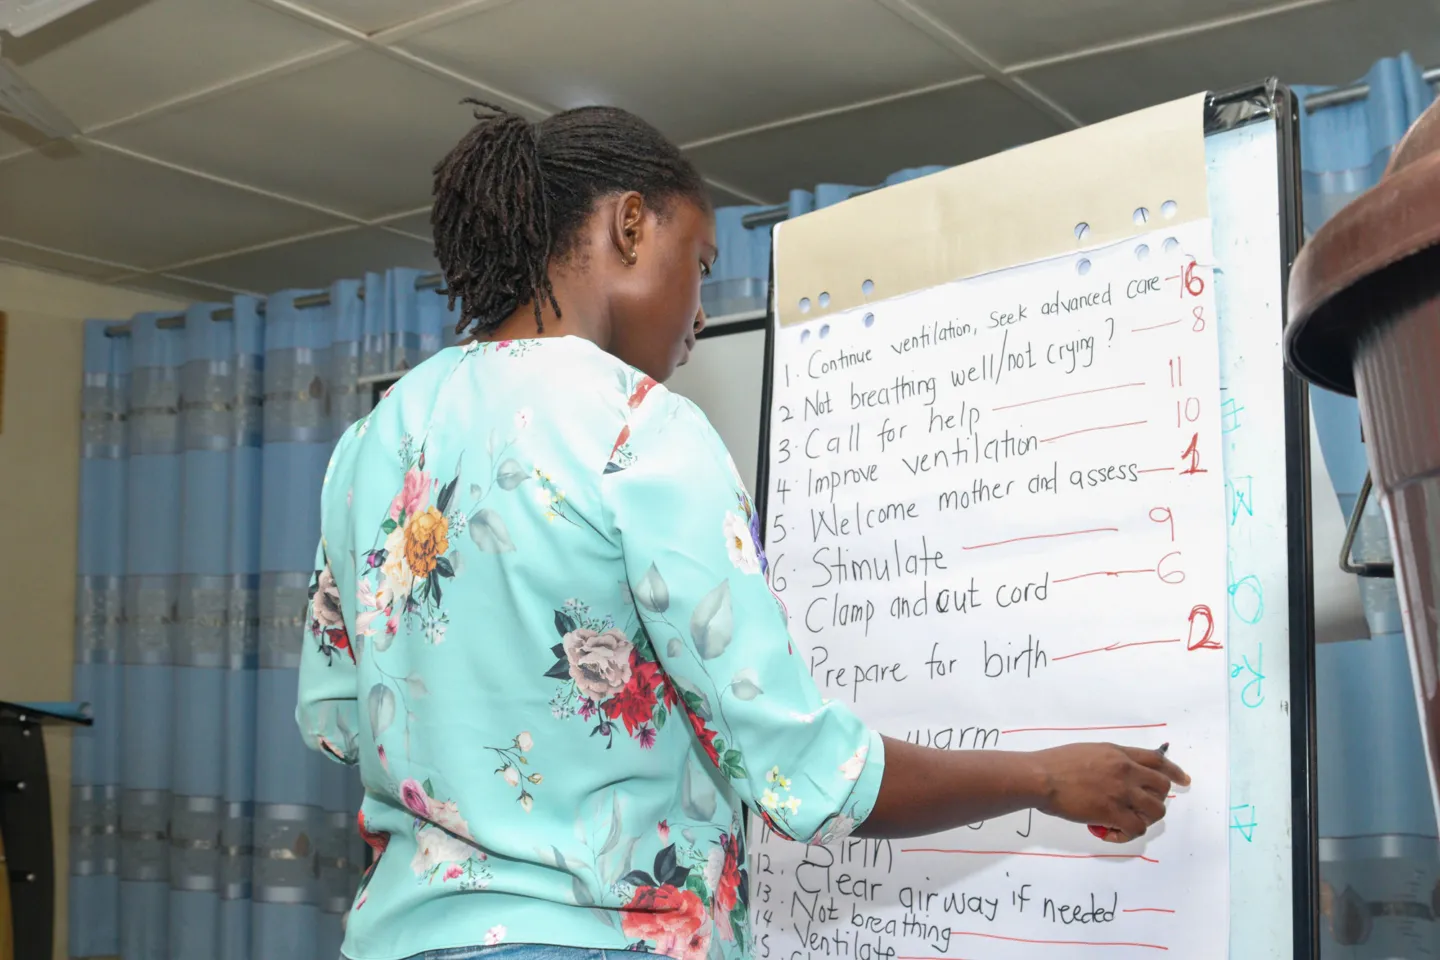 1. Continue ventilation, seek advanced care - 16
2 Not breathing well/not crying? 8
3. Call for help 11
4. Improve ventilation 10
5. Welcome mother and assess 1
6. Stimulate 9
Clamp and cut cord 6
Prepare for birth 2
warm
11 Birth
12. Clear airway if needed
13. Not breathing
14. Ventilate
15.